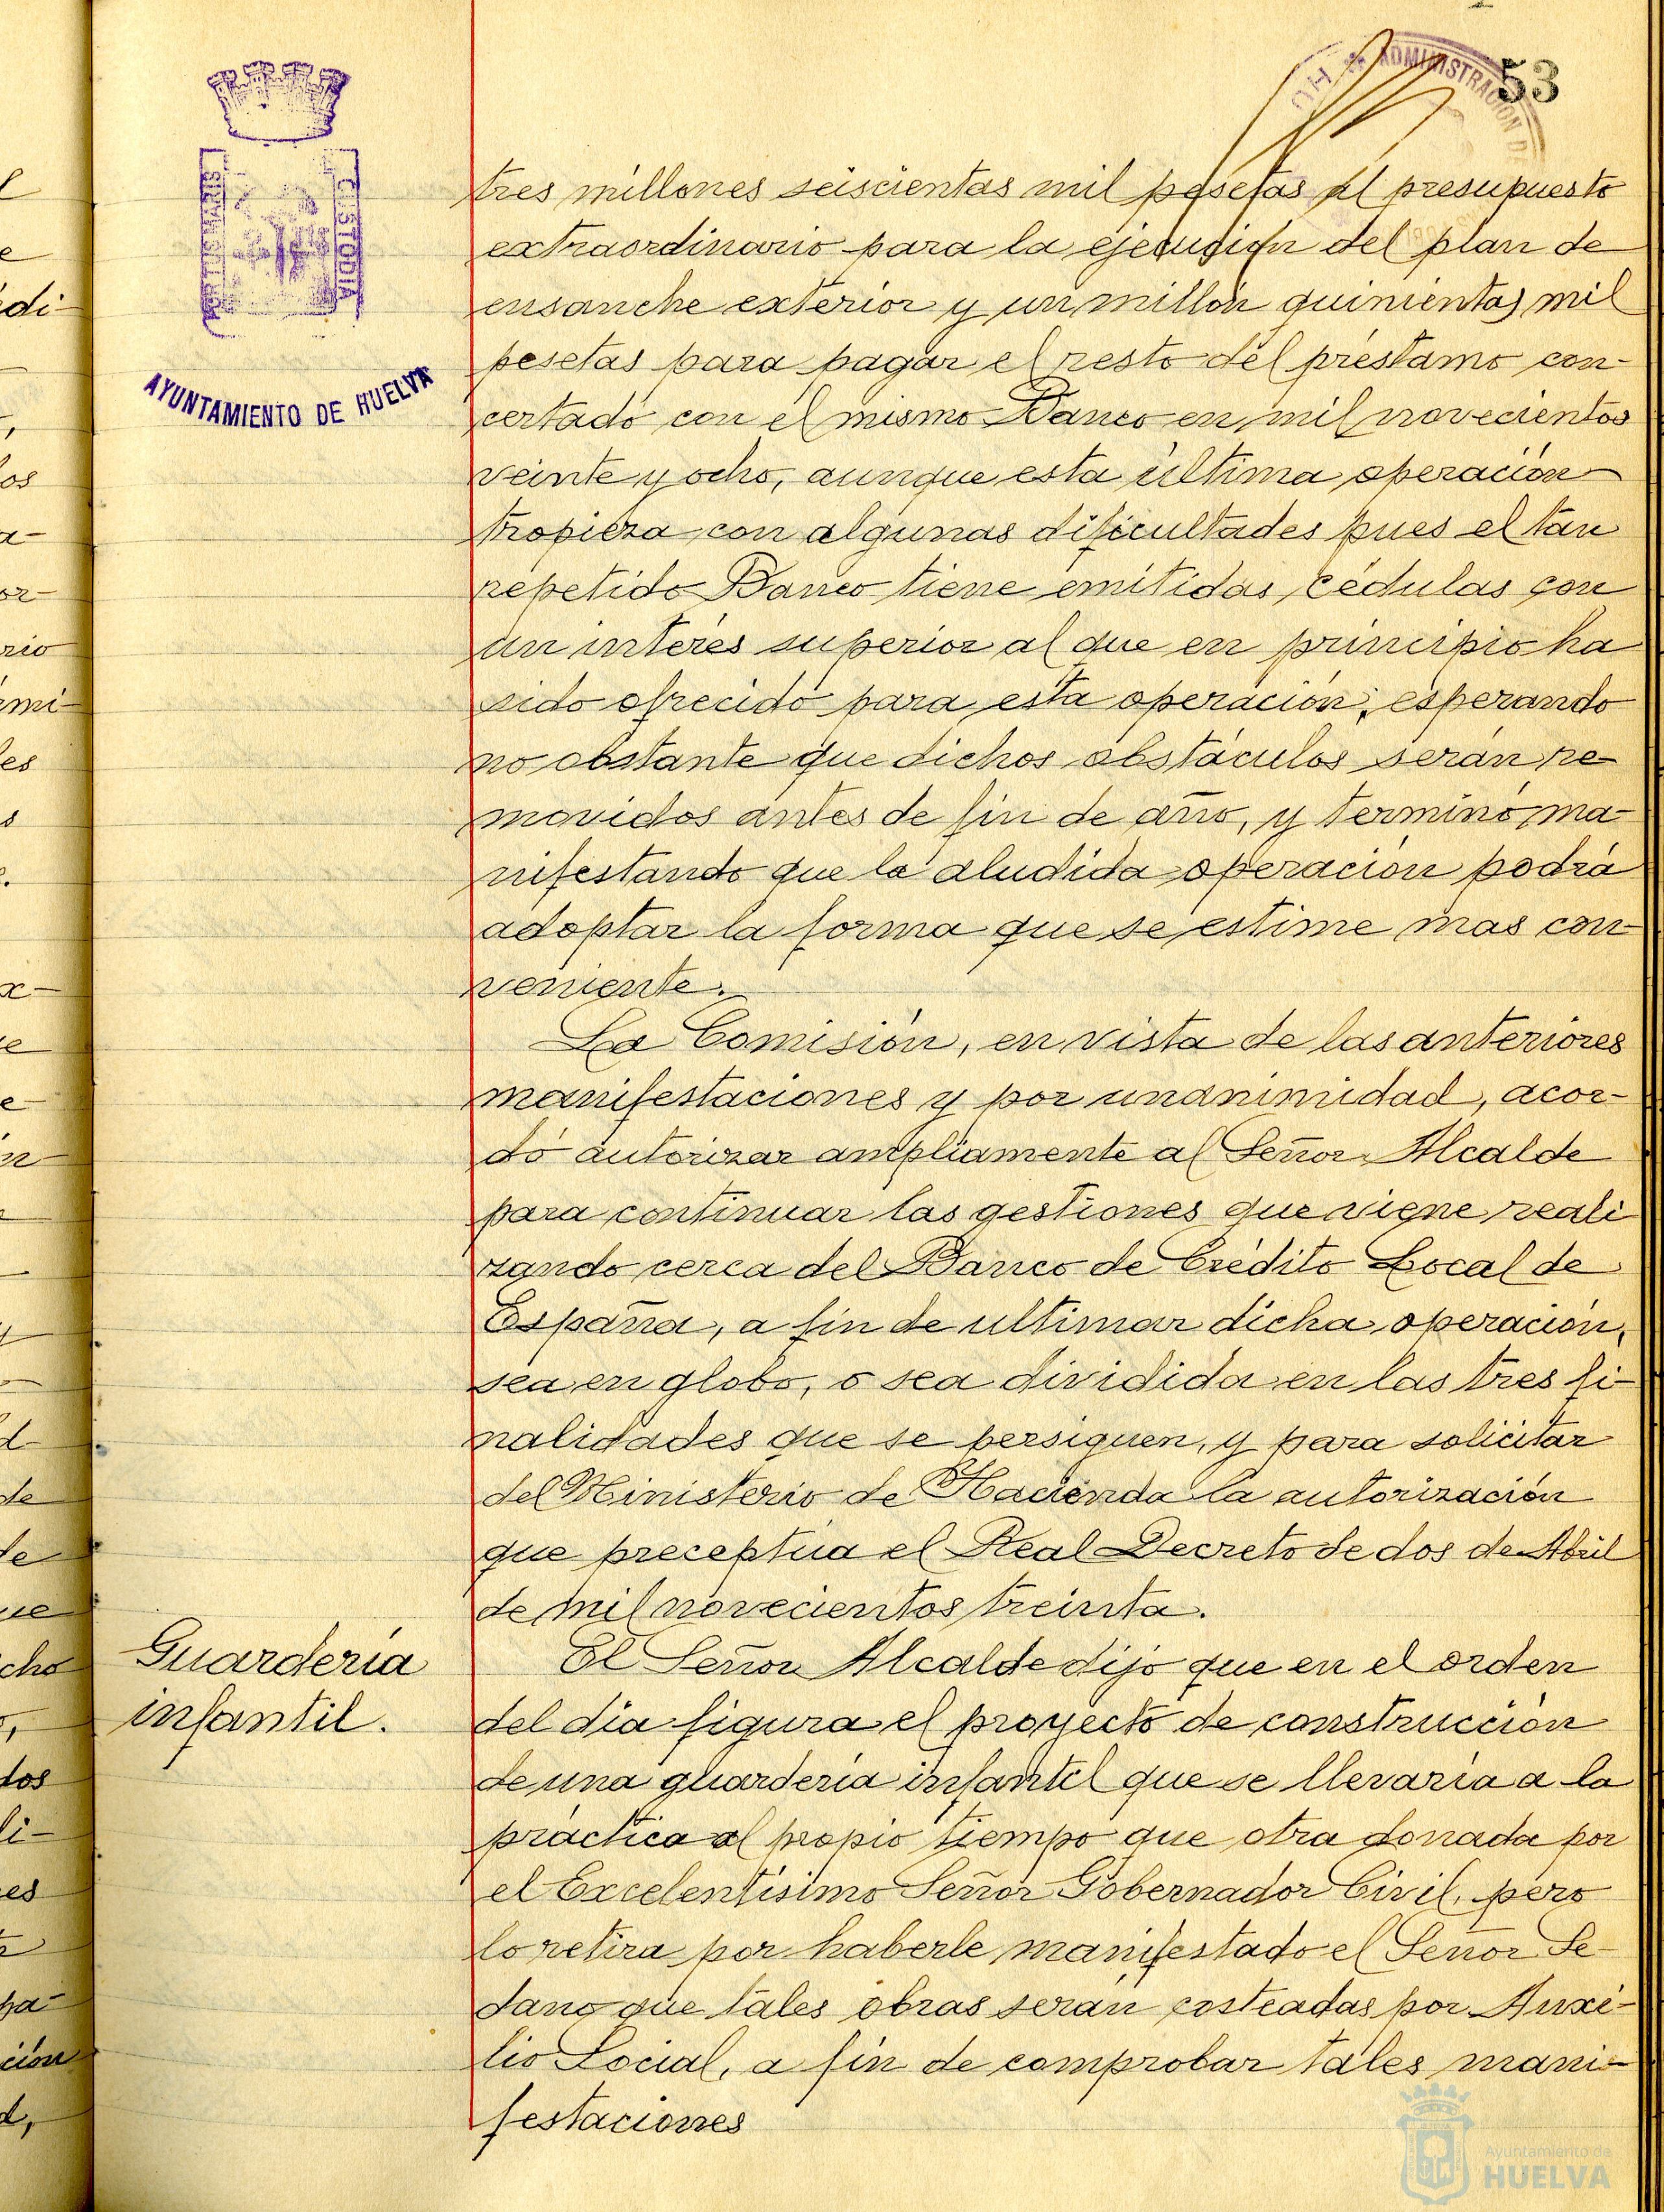 53
ADMINISTRACION D
PORTUS MARIS
CUSTODIA
AYUNTAMIENTO DE HUELVA
tres millones seiscientas mil pesetas al presupuesto
extraordinario para la ejecución del plan de
ensanche exterior y un millón quinientas mil
pesetas para pagar el resto del préstamo con-
certado con el mismo Banco en mil novecientos
veinte y ocho, aunque esta última operación
tropieza con algunas dificultades pues el tan
repetido Banco tiene emitidas cédulas con
un interés superior al que en principio ha
sido ofrecido para esta operación, esperando
no obstante que dichos obstáculos serán re-
movidos antes de fin de año, y terminó ma-
nifestando que la aludida operación podrá
adoptar la forma que se estime mas con-
veniente.
La Comisión, en vista de las anteriores
manifestaciones y por unanimidad, acor-
dó autorizar ampliamente al Señor Alcalde
para continuar las gestiones que viene reali
zando cerca del Banco de Crédito Local de
España, a fin de ultimar dicha operación,
sea en globo, o sea dividida en las tres fi-
nalidades que se persiguen, y para solicitar
del Ministerio de Hacienda la autorización
que preceptúa el Real Decreto de dos de Abril
de mil novecientos treinta.
Guardería
infantil.
El Señor Alcalde dijo que en el orden
del día figura el proyecto de construcción
de una guardería infantil que se llevaría a la
práctica al propio tiempo que otra donada por
el Excelentísimo Señor Gobernador Civil, pero
lo retira por haberle manifestado el Señor Se-
dano que tales obras serán costeadas por Auxi-
lio Social, a fin de comprobar tales mani-
festaciones
Ayuntamiento de
HUELVA